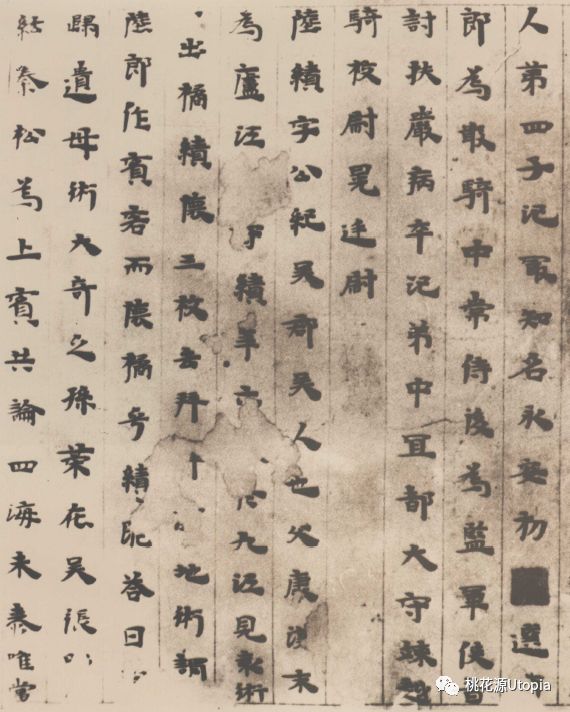 人第四子汜冣知名永安初選
郎為散騎中常侍後為監軍使
討扶嚴病卒汜弟中冝都大守竦越
騎校尉晃廷尉
陸績字公紀吳郡吳人也父康漢末
為廬江績年九江見袁術
出橘績懷三枚去拜地術謂
陸郎作賓客而懷橘乎績跪荅曰
歸遺母術大奇之孫策在吳張
紘秦松為上賓共論四海未泰唯當
桃花源Utopia